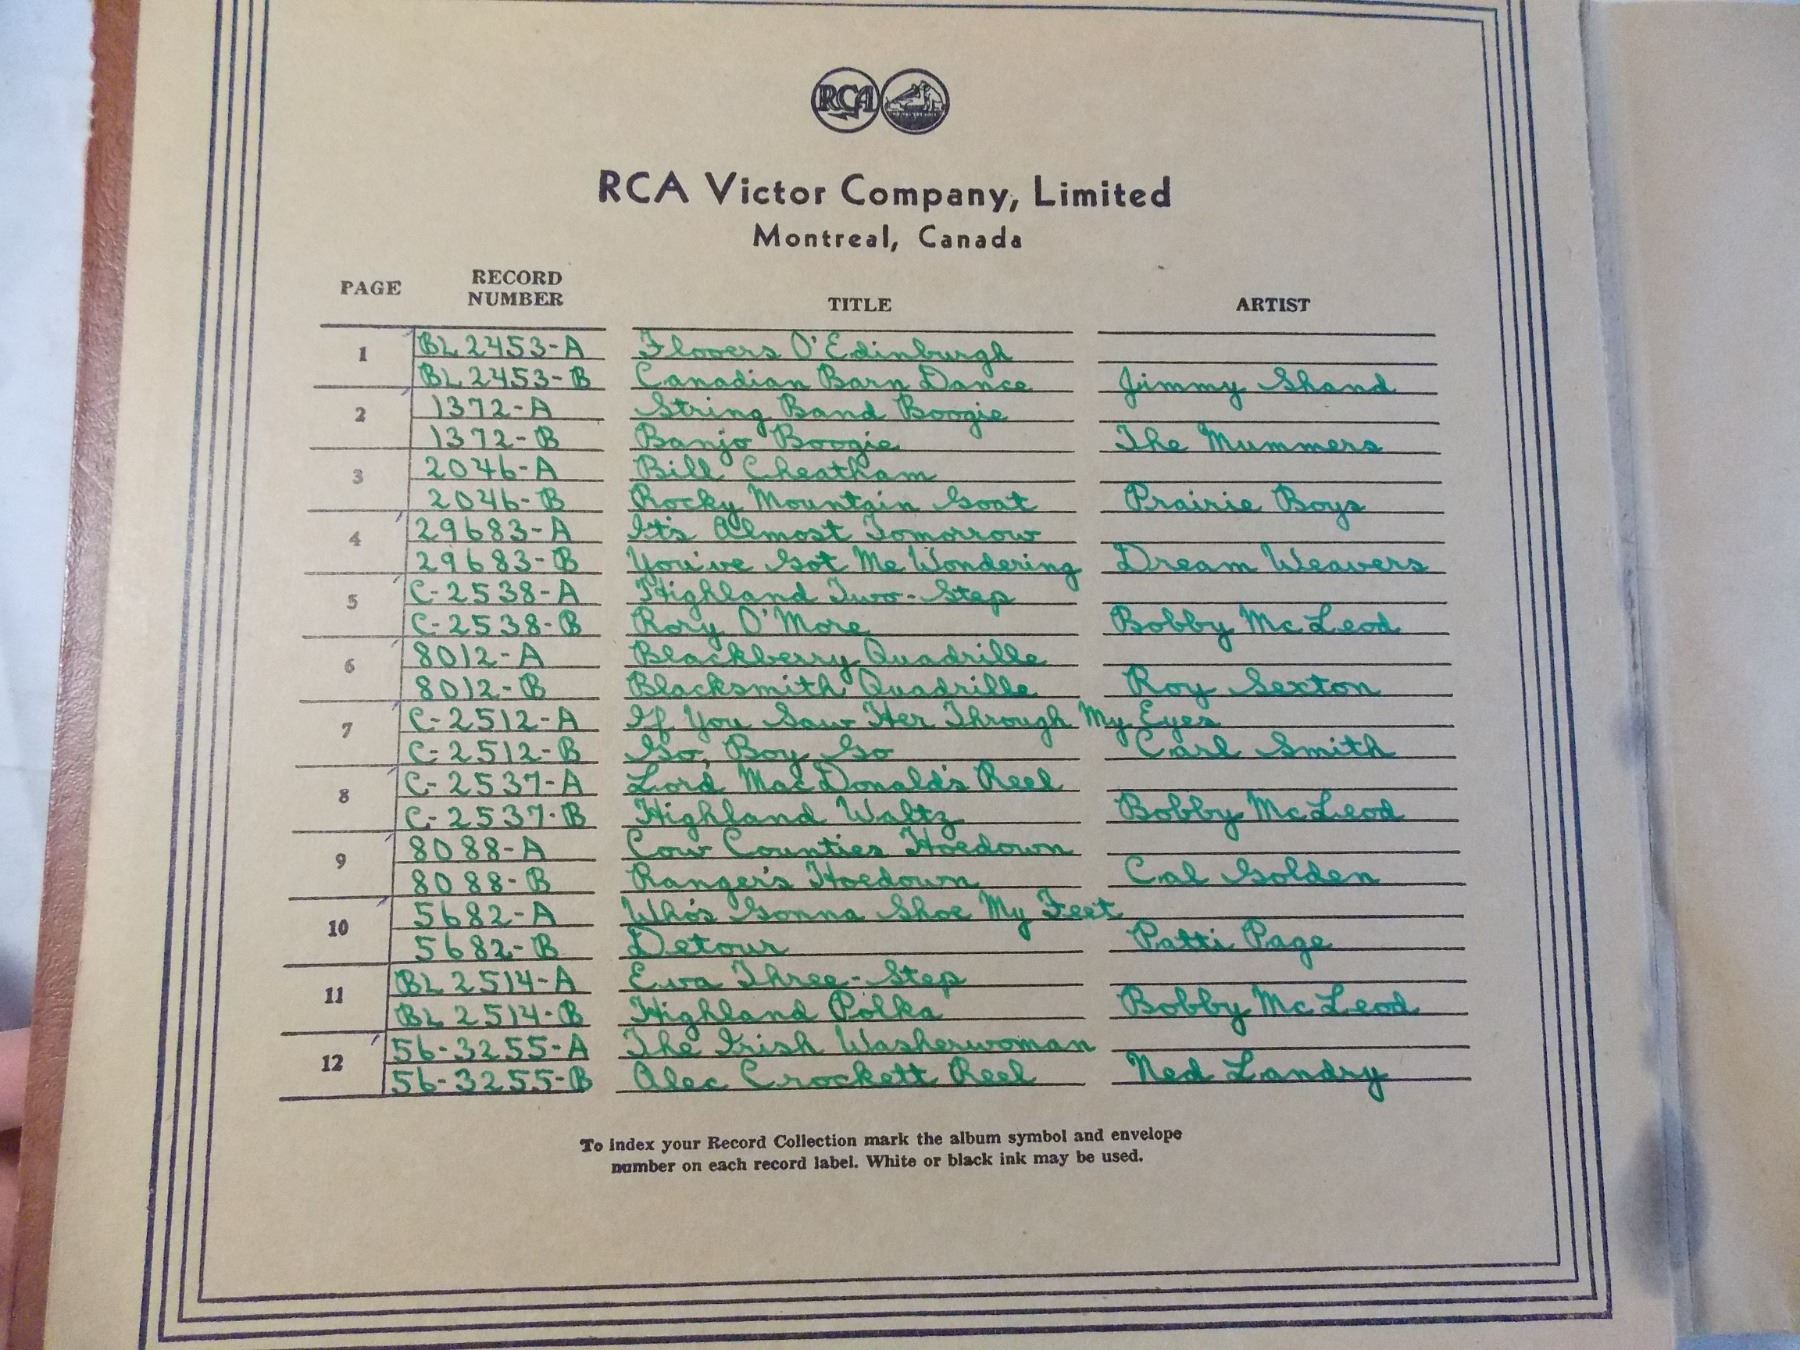 RCA
RCA Victor Company, Limited
Montreal, Canada
PAGE RECORD NUMBER TITLE ARTIST
1 BL2453-A Flowers O'Edinburgh
BL2453-B Canadian Barn Dance Jimmy Shand
2 1372-A String Band Boogie
1372-B Banjo Boogie The Mummers
3 2046-A Bill Cheatham
2046-B Rocky Mountain Goat Prairie Boys
4 29683-A It's Almost Tomorrow
29683-B You've Got Me Wondering Dream Weavers
5 C-2538-A Highland Two-Step
C-2538-B Rory O'More Bobby McLeod
6 8012-A Blackberry Quadrille
8012-B Blacksmith Quadrille Roy Sexton
7 C-2512-A If You Saw Her Through My Eyes
C-2512-B Go, Boy Go Carl Smith
8 C-2537-A Lord MacDonald's Reel
C-2537-B Highland Waltz Bobby McLeod
9 8088-A Cow Counties Hoedown
8088-B Ranger's Hoedown Cal Golden
10 5682-A Who's Gonna Shoe My Feet
5682-B Detour Patti Page
11 BL2514-A Eva Three-Step
BL2514-B Highland Polka Bobby McLeod
12 56-3255-A The Irish Washerwoman
56-3255-B Alec Crockett Reel Ned Landry
To index your Record Collection mark the album symbol and envelope
number on each record label. White or black ink may be used.